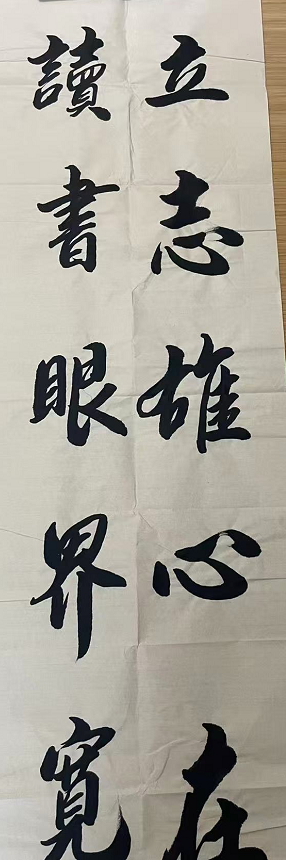 立志雄心在
讀書眼界寬